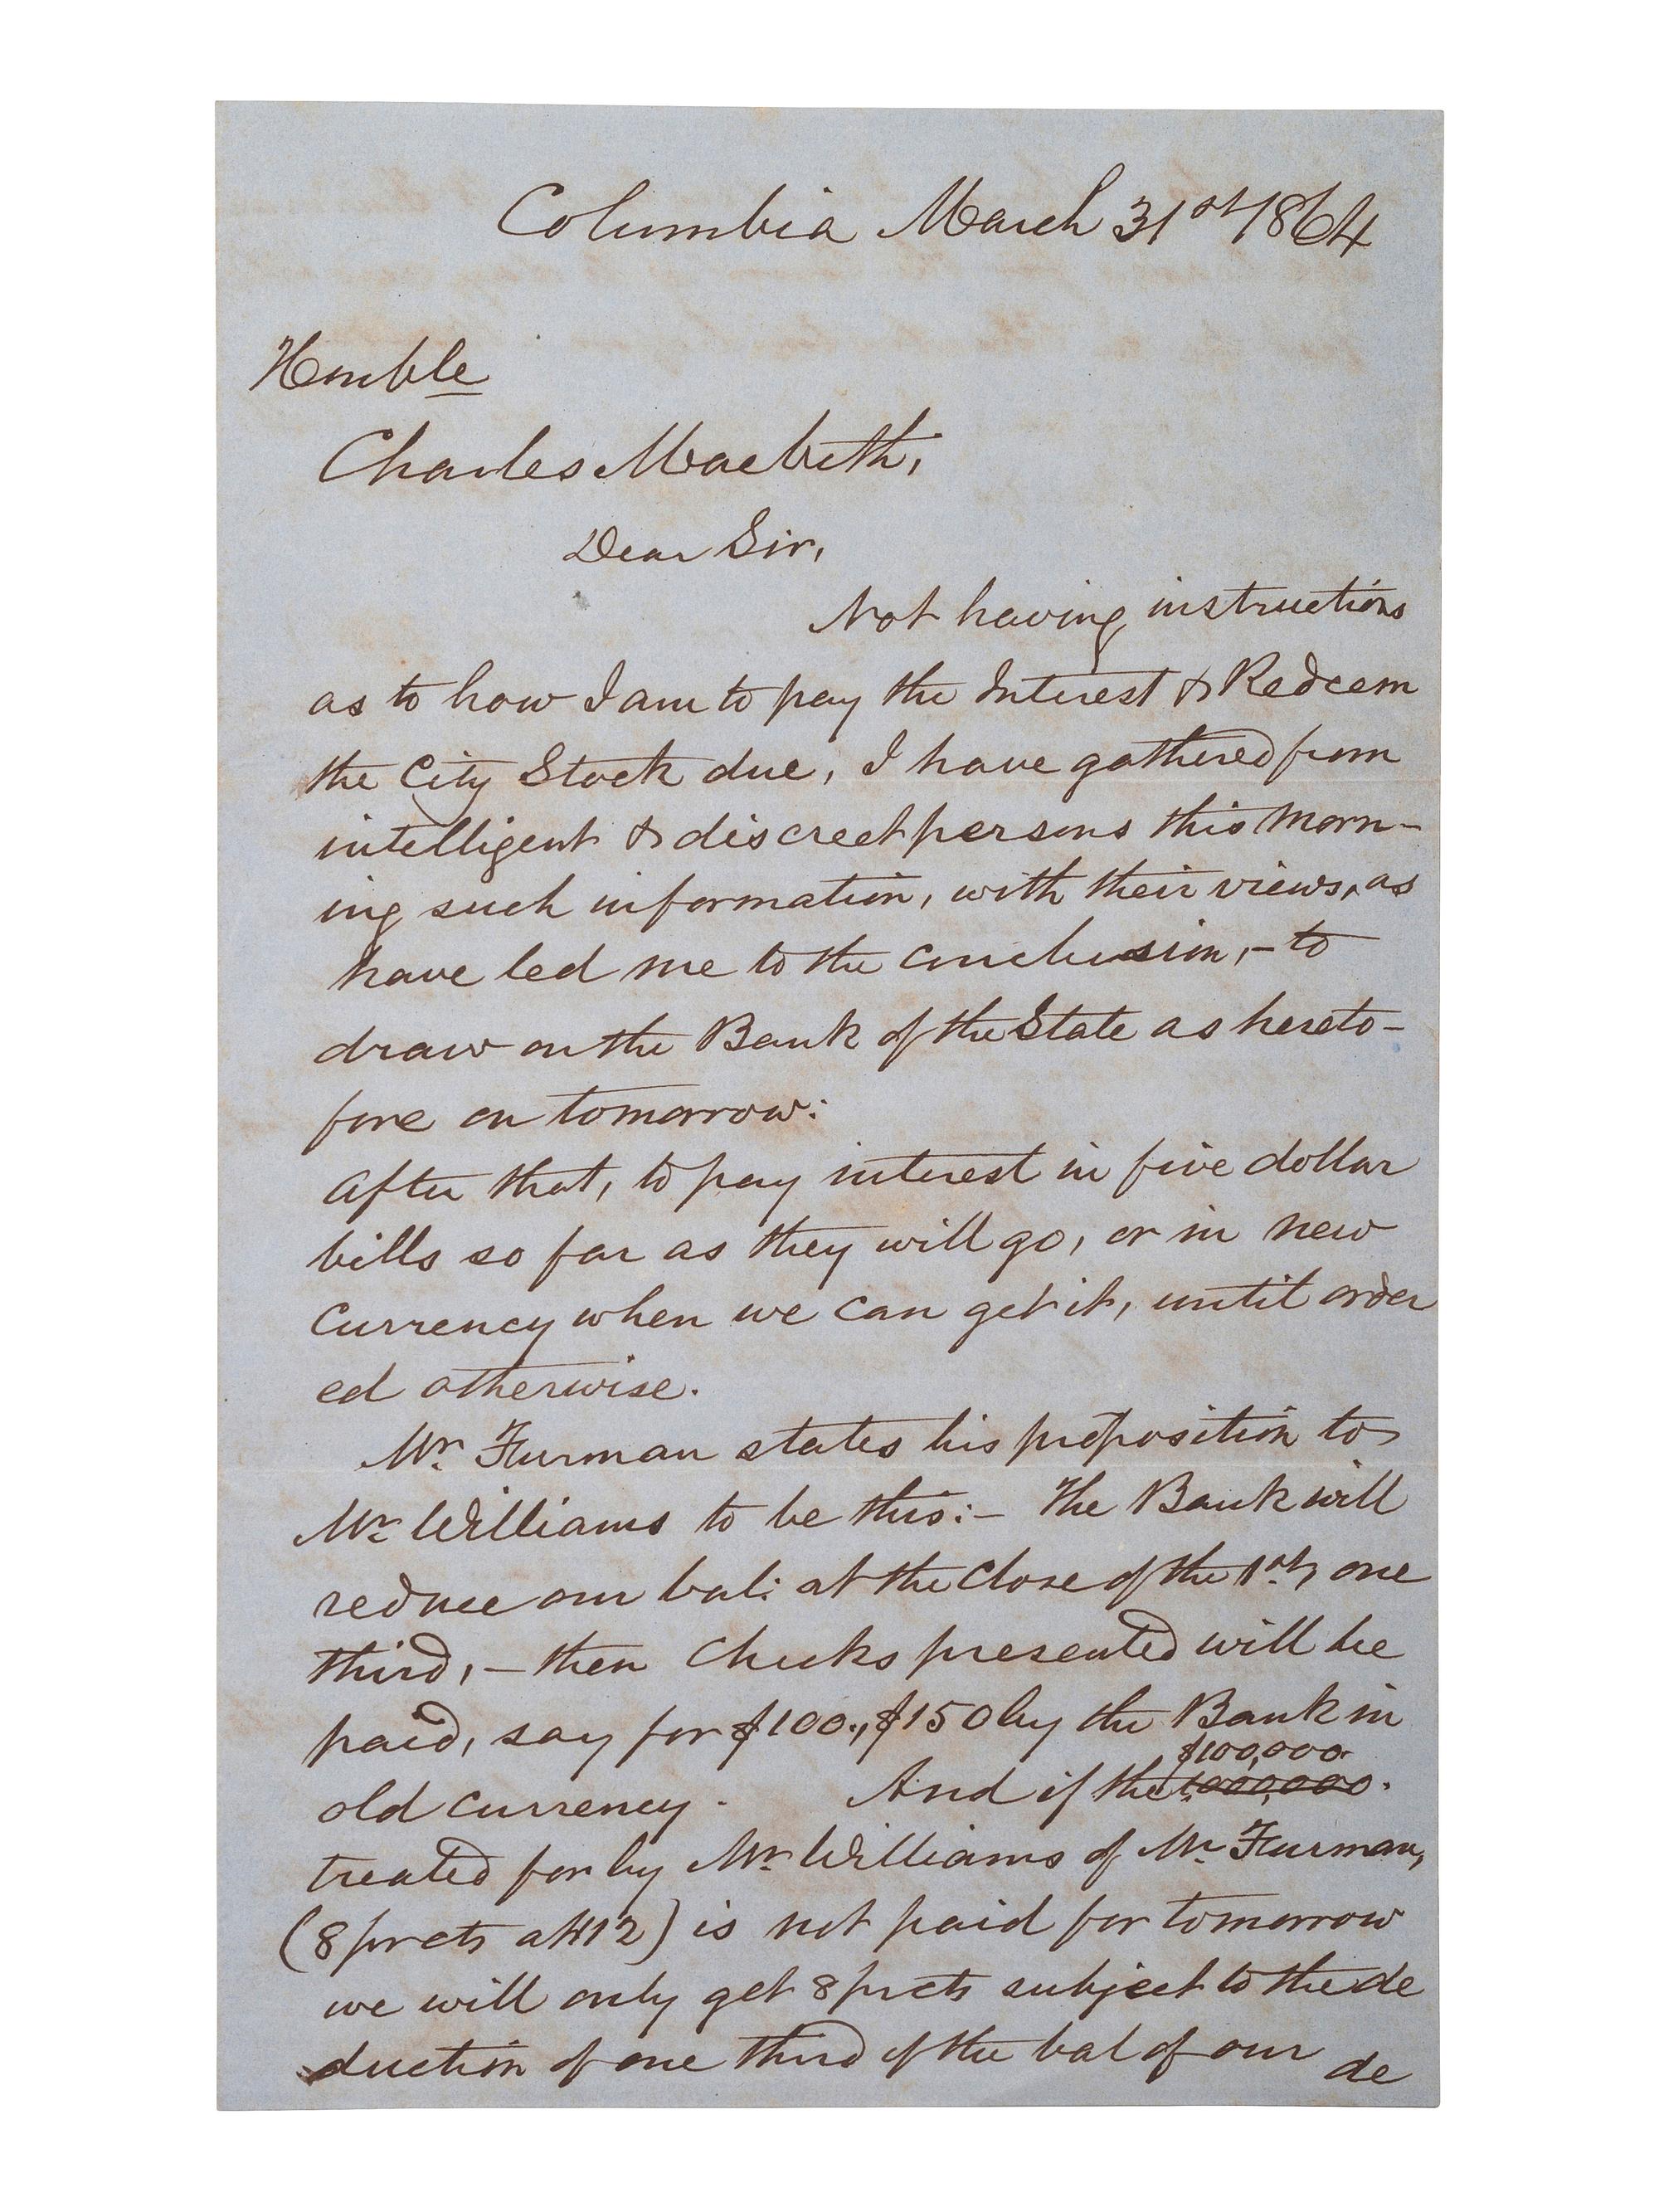 Columbia March 31st 1864
Honble
Charles Macbeth,
Dear Sir,
Not having instructions
as to how I am to pay the Interest & Redeem
the City Stock due, I have gathered from
intelligent & discreet persons this morn-
ing such information, with their views, as
have led me to the conclusion, - to
draw on the Bank of the State as hereto-
fore on tomorrow:
After that, to pay interest in five dollar
bills so far as they will go, or in new
Currency when we can get it, until order
ed otherwise.
Mr. Furman states his proposition to
Mr. Williams to be this:- The Bank will
reduce our bal: at the Close of the 1st, one
third, - then Checks presented will be
paid, say for $100., $150 by the Bank in
$100,000.
old currency. And if the 1000,000.
treated for by Mr. Williams of Mr. Furman,
(8 prcts at 112) is not paid for tomorrow
we will only get 8 prcts subject to the de
duction of one third of the bal of our de